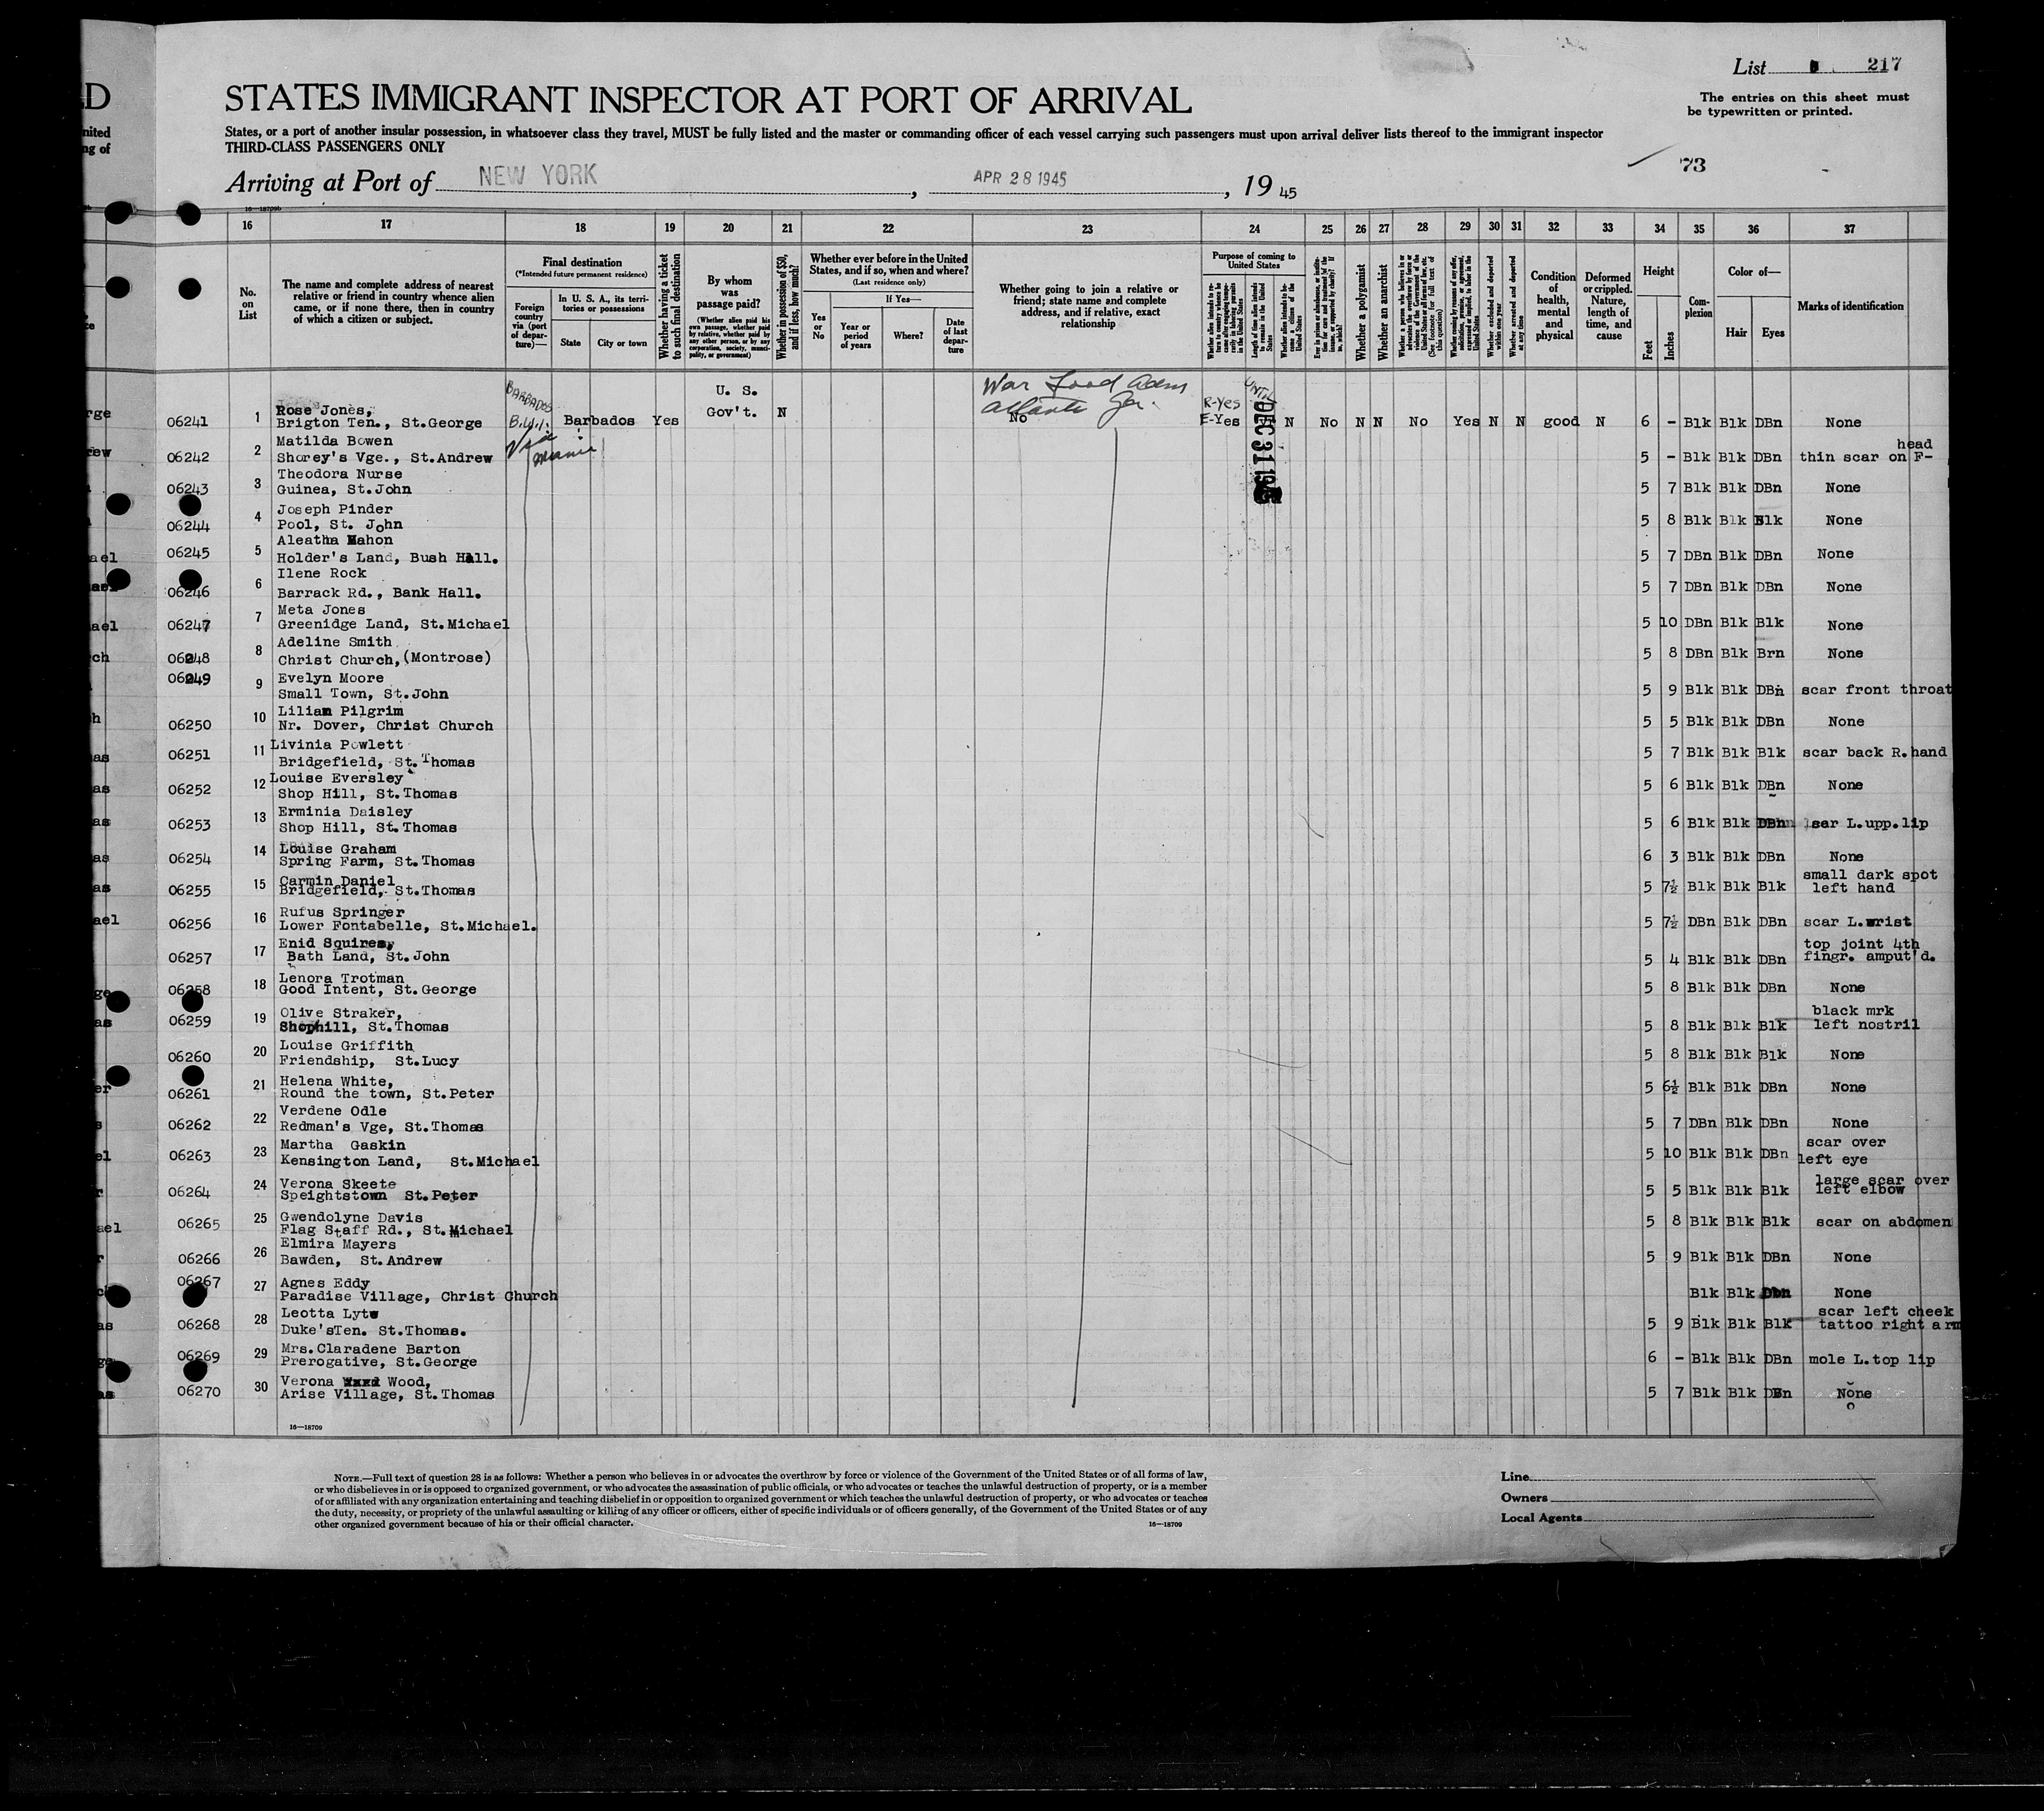 List 217
The entries on this sheet must
be typewritten or printed.
STATES IMMIGRANT INSPECTOR AT PORT OF ARRIVAL
States, or a port of another insular possession, in whatsoever class they travel, MUST be fully listed and the master or commanding officer of each vessel carrying such passengers must upon arrival deliver lists thereof to the immigrant inspector
THIRD-CLASS PASSENGERS ONLY
73
Arriving at Port of NEW YORK, APR 28 1945, 1945
16 17 18 19 20 21 22 23 24 25 26 27 28 29 30 31 32 33 34 35 36 37
No. on List
The name and complete address of nearest relative or friend in country whence alien came, or if none there, then in country of which a citizen or subject.
Final destination
(*Intended future permanent residence)
Foreign country via (port of departure)—
In U. S. A., its territories or possessions
State
City or town
Whether having a ticket to such final destination
By whom was passage paid?
(Whether alien paid his own passage, whether paid by relative, whether paid by any other person, or by any corporation, society, municipality, or government)
Whether in possession of $50, and if less, how much?
Whether ever before in the United States, and if so, when and where?
(Last residence only)
Yes or No
If Yes—
Year or period of years
Where?
Date of last departure
Whether going to join a relative or friend; state name and complete address, and if relative, exact relationship
Purpose of coming to United States
Length of time alien intends to remain in the United States
Whether alien intends to become a citizen of the United States
Whether a polygamist
Whether an anarchist
Whether excluded and deported within one year
Whether arrested and deported at any time
Condition of health, mental and physical
Deformed or crippled. Nature, length of time, and cause
Height
Feet
Inches
Complexion
Color of—
Hair
Eyes
Marks of identification
War Food Adm
Atlanta Ga.
BARBADOS
B.W.I.
Via
Miami
UNTIL
DEC 31 1945
06241 1 Rose Jones, Brigton Ten., St.George Barbados Yes U. S. Gov't. N No R-Yes E-Yes N No N N No Yes N N good N 6 - Blk Blk DBn None
06242 2 Matilda Bowen Shorey's Vge., St.Andrew 5 - Blk Blk DBn thin scar on F-head
06243 3 Theodora Nurse Guinea, St.John 5 7 Blk Blk DBn None
06244 4 Joseph Pinder Pool, St. John 5 8 Blk Blk Blk None
06245 5 Aleatha Mahon Holder's Land, Bush Hall. 5 7 DBn Blk DBn None
06246 6 Ilene Rock Barrack Rd., Bank Hall. 5 7 DBn Blk DBn None
06247 7 Meta Jones Greenidge Land, St.Michael 5 10 DBn Blk Blk None
06248 8 Adeline Smith Christ Church,(Montrose) 5 8 DBn Blk Brn None
06249 9 Evelyn Moore Small Town, St.John 5 9 Blk Blk DBn scar front throat
06250 10 Lilian Pilgrim Nr. Dover, Christ Church 5 5 Blk Blk DBn None
06251 11 Livinia Powlett Bridgefield, St.Thomas 5 7 Blk Blk Blk scar back R.hand
06252 12 Louise Eversley Shop Hill, St.Thomas 5 6 Blk Blk DBn None
06253 13 Erminia Daisley Shop Hill, St.Thomas 5 6 Blk Blk DBn scar L.upp.lip
06254 14 Louise Graham Spring Farm, St.Thomas 6 3 Blk Blk DBn None
06255 15 Carmin Daniel Bridgefield, St.Thomas 5 7½ Blk Blk Blk small dark spot left hand
06256 16 Rufus Springer Lower Fontabelle, St.Michael. 5 7½ DBn Blk DBn scar L.wrist
06257 17 Enid Squires, Bath Land, St.John 5 4 Blk Blk DBn top joint 4th fingr. amput'd.
06258 18 Lenora Trotman Good Intent, St.George 5 8 Blk Blk DBn None
06259 19 Olive Straker, Shophill, St.Thomas 5 8 Blk Blk Blk black mrk left nostril
06260 20 Louise Griffith Friendship, St.Lucy 5 8 Blk Blk Blk None
06261 21 Helena White, Round the town, St.Peter 5 6½ Blk Blk DBn None
06262 22 Verdene Odle Redman's Vge, St.Thomas 5 7 DBn Blk DBn None
06263 23 Martha Gaskin Kensington Land, St.Michael 5 10 Blk Blk DBn scar over left eye
06264 24 Verona Skeete Speightstown St.Peter 5 5 Blk Blk Blk large scar over left elbow
06265 25 Gwendolyne Davis Flag Staff Rd., St.Michael 5 8 Blk Blk Blk scar on abdomen
06266 26 Elmira Mayers Bawden, St.Andrew 5 9 Blk Blk DBn None
06267 27 Agnes Eddy Paradise Village, Christ Church Blk Blk Dbn None
06268 28 Leotta Lyte Duke'sTen. St.Thomas. 5 9 Blk Blk Blk scar left cheek tattoo right arm
06269 29 Mrs.Claradene Barton Prerogative, St.George 6 - Blk Blk DBn mole L.top lip
06270 30 Verona Wood, Arise Village, St.Thomas 5 7 Blk Blk DBn None
16—18709
NOTE.—Full text of question 28 is as follows: Whether a person who believes in or advocates the overthrow by force or violence of the Government of the United States or of all forms of law,
or who disbelieves in or is opposed to organized government, or who advocates the assassination of public officials, or who advocates or teaches the unlawful destruction of property, or is a member
of or affiliated with any organization entertaining and teaching disbelief in or opposition to organized government or which teaches the unlawful destruction of property, or who advocates or teaches
the duty, necessity, or propriety of the unlawful assaulting or killing of any officer or officers, either of specific individuals or of officers generally, of the Government of the United States or of any
other organized government because of his or their official character.
16—18709
Line
Owners
Local Agents